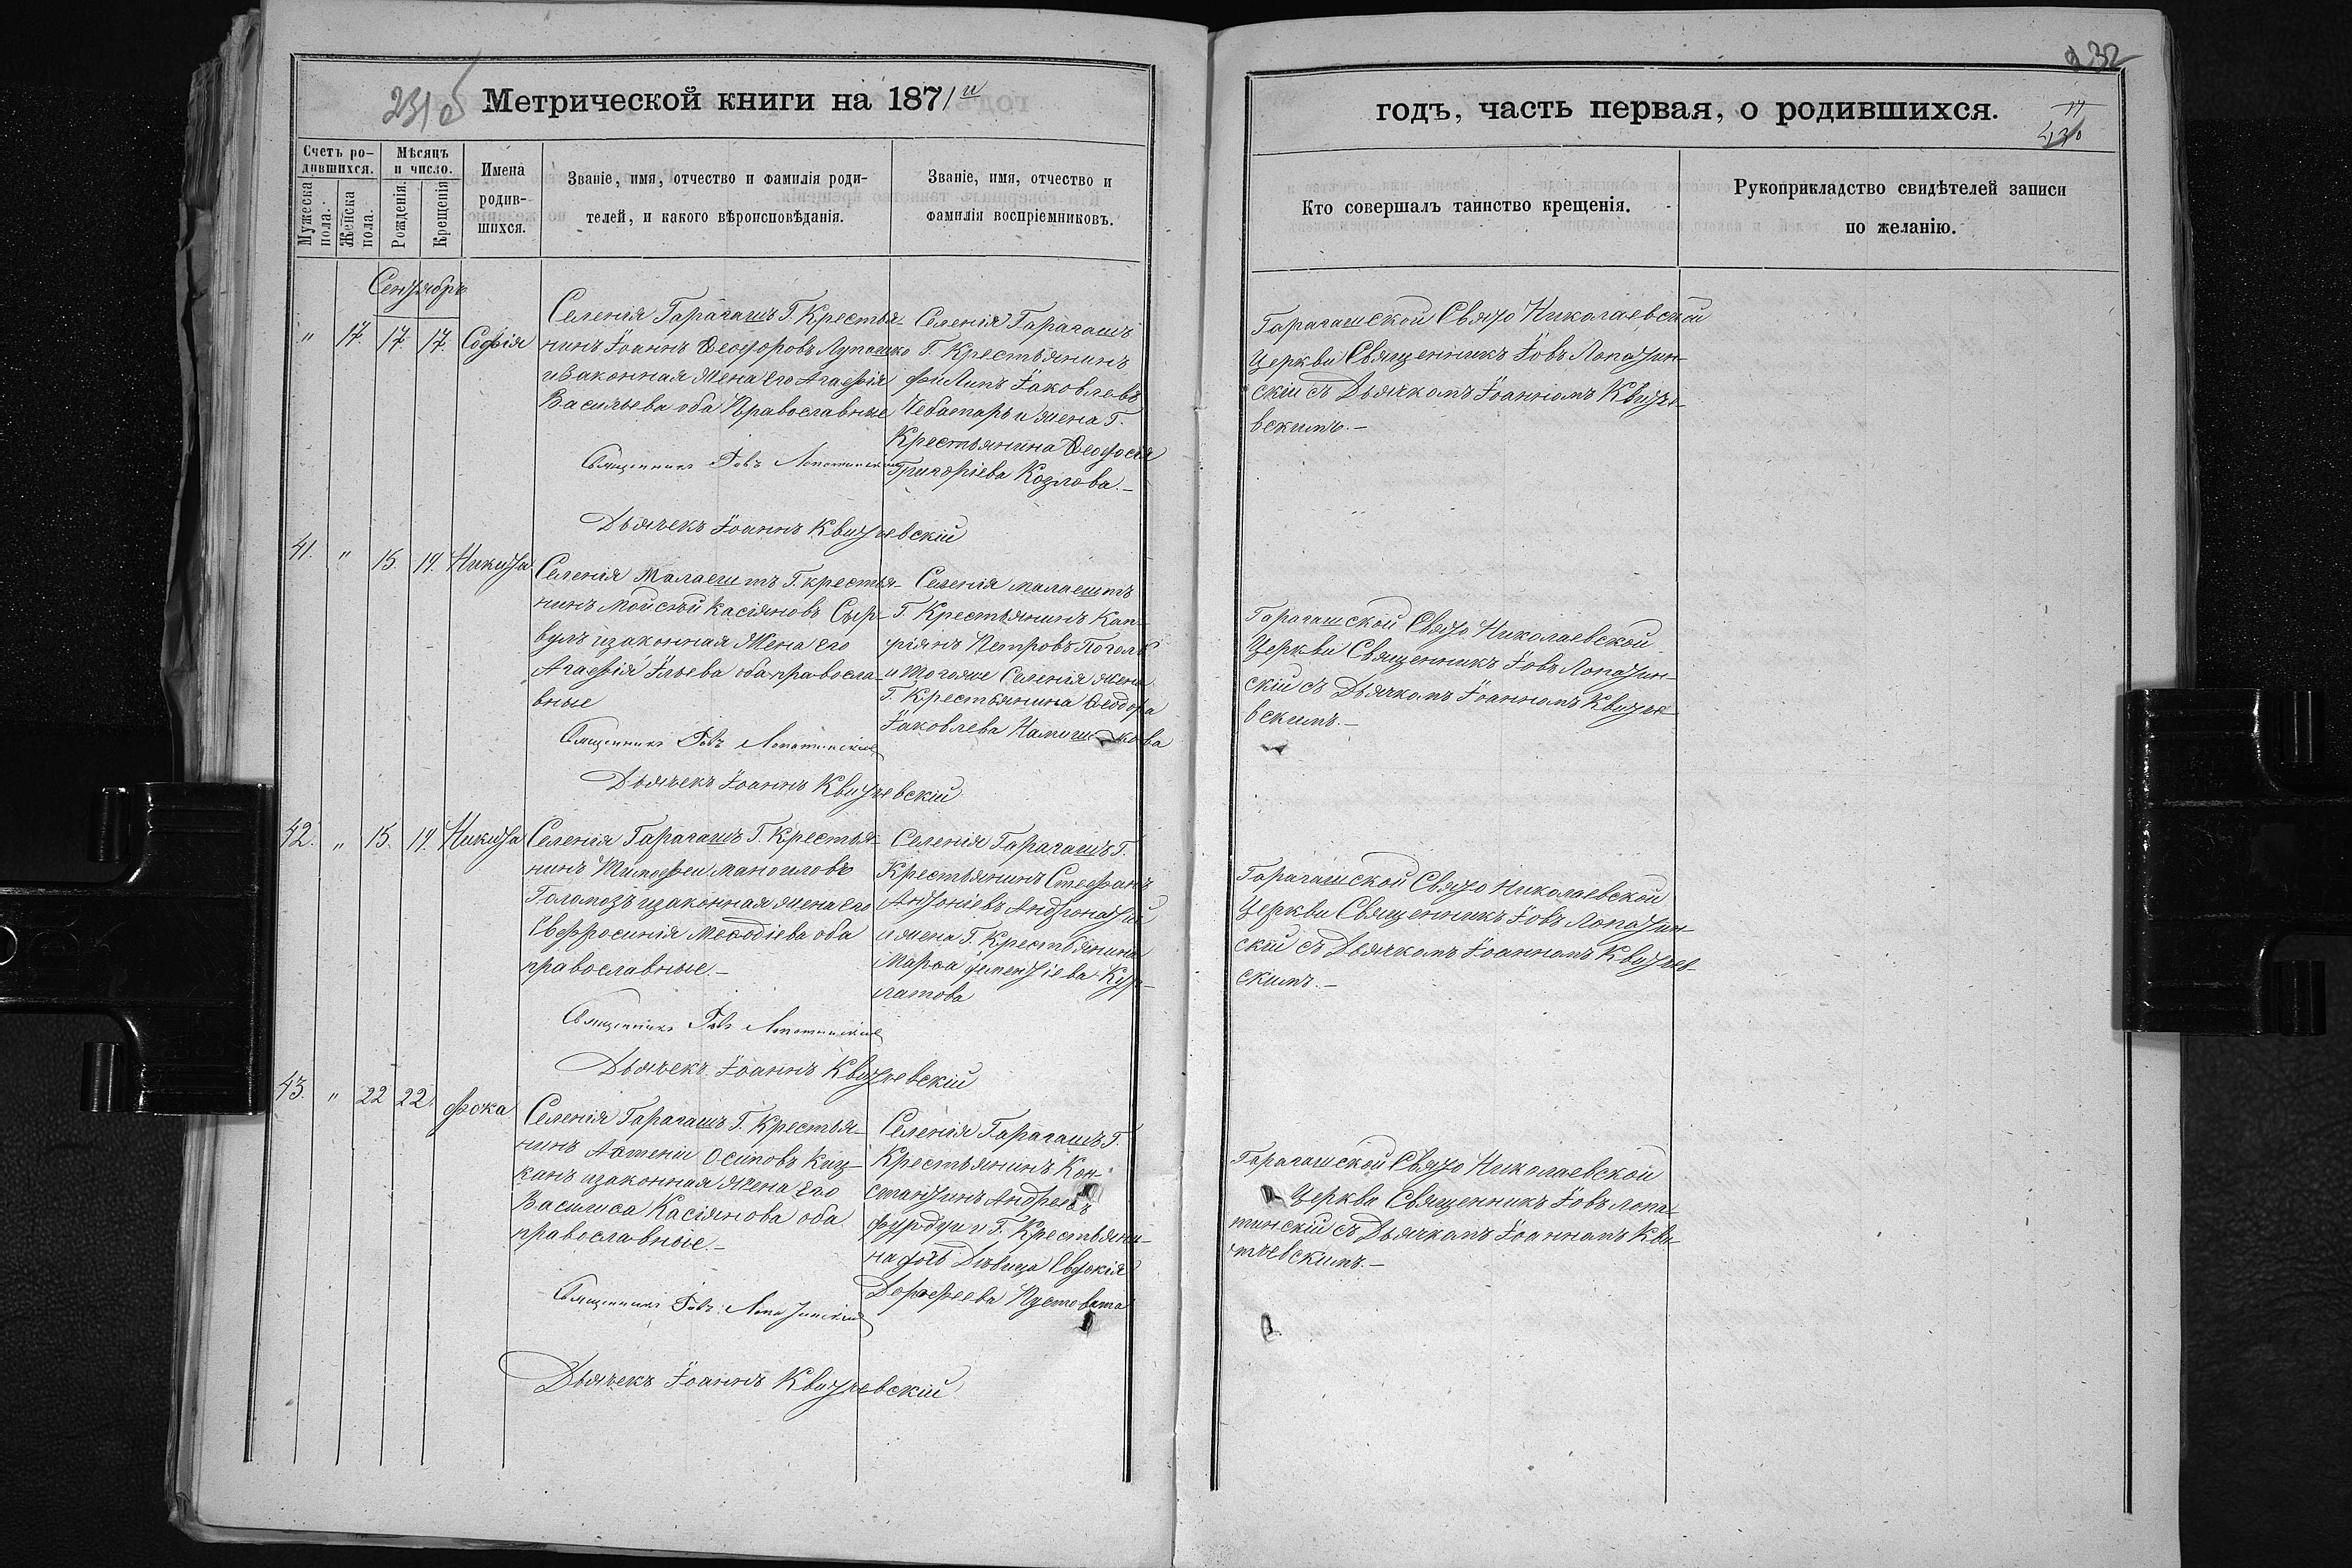 231 об
Метрической книги на 1871й
Счетъ родившихся.
Мужеска пола.
Женска пола.
Мѣсяцъ и число.
Рожденія.
Крещенія
Имена родившихся.
Званіе, имя, отчество и фамилія родителей, и какого вѣроисповѣданія.
Званіе, имя, отчество и фамилія воспріемниковъ.
Сентябрь
" 17. 17. 17. Софія
Селенія Гарагашъ Г. Крестья-
нинъ Іоаннъ Ѳеодоровъ Лупашко
и законная Жена его Агафія
Васильева оба Православные
Священникъ Іовъ Лопатинскій
Дьячекъ Іоаннъ Квитѣевскій
Селенія Гарагашъ
Г. Крестьянинъ
Филипъ Іаковлевъ
Чеботарь и жена Г.
Крестьянина Ѳеодосія
Григоріева Козлова.-
41. " 15. 19. Никита
Селенія Малаештъ Г. крестья-
нинъ Мойсѣй Касіяновъ Сыр-
вулъ изаконная Жена его
Агафія Ильева оба правосла-
вные
Священникъ Іовъ Лопатинскій
Дьячекъ Іоаннъ Квитѣевскій
Селенія малаештъ
Г. Крестьянинъ Кап-
ріянъ Петровъ
и тогоже Селенія жена
Г. Крестьянина Ѳеодора
Іаковлева
42. " 15. 19. Никита
Селенія Гарагашъ Г. Крестья-
нинъ Тимофеи Маноиловъ
Голомозъ изаконная жена его
Евфросинія Меѳодіева оба
православные.-
Священникъ Іовъ Лопатинскій
Дьячекъ Іоаннъ Квитѣевскій
Селенія Гарагашъ Г.
Крестьянинъ Стефанъ
Антоніевъ Андронатій
и жена Г. Крестьянина
Марѳа Терентіева Кур-
латова
43. " 22 22. Фока
Селенія Гарагашъ Г. Крестья-
нинъ Артеніи Осиповъ Киц-
канъ изаконная Жена Его
Василиса Касіянова оба
православные.-
Священникъ Іовъ Лопатинскій
Дьячекъ Іоаннъ Квитѣевскій
Селенія Гарагашъ Г.
Крестьянинъ Кон-
стантинъ Андреевъ
Фурдуи и Г. Крестьяни-
на дочь Дѣвица Евдокія
Дорофеева Пустовата
232
годъ, часть первая, о родившихся.
Кто совершалъ таинство крещенія.
Рукоприкладство свидѣтелей записи
по желанію.
Гарагашской Свято Николаевской
Церкви Священникъ Іовъ Лопатин-
скій съ Дьячкомъ Іоанномъ Квитѣ-
вскимъ.-
Гарагашской Свято Николаевской
Церкви Священникъ Іовъ Лопатин-
скій съ Дьячкомъ Іоанномъ Квитѣе-
вскимъ.-
Гарагашской Свято Николаевской
Церкви Священникъ Іовъ Лопатин-
скій съ Дьячкомъ Іоанномъ Квитѣев-
скимъ.-
Гарагашской Свято Николаевской
Церкви Священникъ Іовъ Лопа-
тинскій съ Дьячкомъ Іоанномъ Кви-
тѣевскимъ.-